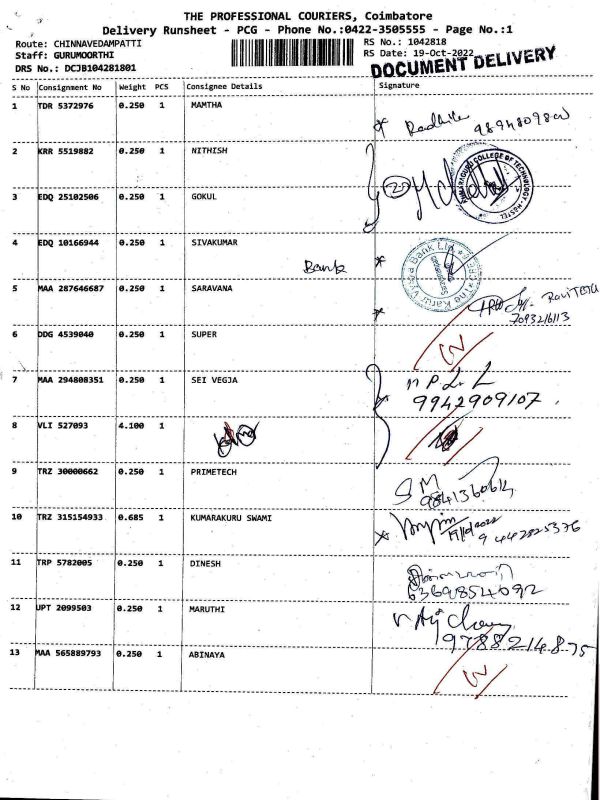 THE PROFESSIONAL COURIERS, Coimbatore
Delivery Runsheet - PCG - Phone No.:0422-3505555 - Page No.:1
Route: CHINNAVEDAMPATTI RS No.: 1042818
Staff: GURUMOORTHI RS Date: 19-Oct-2022
DRS No.: DCJB104281801 DOCUMENT DELIVERY
S No Consignment No Weight PCS Consignee Details Signature
1 TDR 5372976 0.250 1 MAMTHA
2 KRR 5519882 0.250 1 NITHISH
3 EDQ 25102506 0.250 1 GOKUL
4 EDQ 10166944 0.250 1 SIVAKUMAR
Bank
5 MAA 287646687 0.250 1 SARAVANA
7093216113
6 DDG 4539040 0.250 1 SUPER
7 MAA 294808351 0.250 1 SEI VEGJA
9942909107
8 VLI 527093 4.100 1
9 TRZ 30000662 0.250 1 PRIMETECH
SM
10 TRZ 315154933 0.685 1 KUMARAKURU SWAMI
9442825376
11 TRP 5782005 0.250 1 DINESH
12 UPT 2099503 0.250 1 MARUTHI
9788214875
13 MAA 565889793 0.250 1 ABINAYA